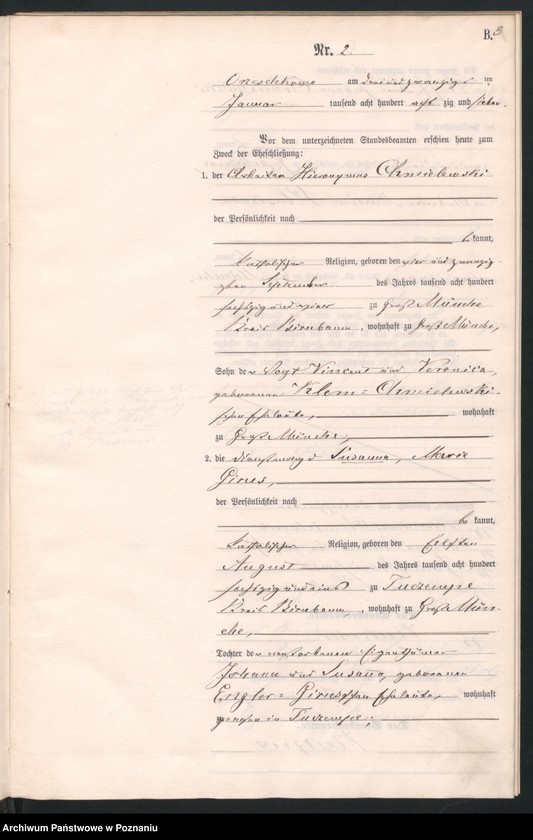 B. 3
Nr. 2.
am drei und zwanzig ten
Januar tausend acht hundert acht zig und sieben.
Vor dem unterzeichneten Standesbeamten erschien heute zum
Zweck der Eheschließung:
1. der Arbeiter Hieronymus Chmielewski
der Persönlichkeit nach
be kannt,
katholischer Religion, geboren den vier und zwanzig-
sten September des Jahres tausend acht hundert
sechszig und vier zu Groß Münche
Kreis Birnbaum, wohnhaft zu Groß Münche,
Sohn der Vogt Vincent und Veronica,
geborenen Klem-Chmielewski-
schen Eheleute, wohnhaft
zu Groß Münche,
2. die Dienstmagd Susanna, Marie
der Persönlichkeit nach
be kannt,
katholischer Religion, geboren den Elften
August des Jahres tausend acht hundert
sechszig und eins zu Tuczempe
Kreis Birnbaum, wohnhaft zu Groß Mün-
che,
Tochter der verstorbenen Eigenthümer
Johann und Susana, geborenen
Engler- schen Eheleute, wohnhaft
gewesen in Tuczempe,
Archiwum Państwowe w Poznaniu